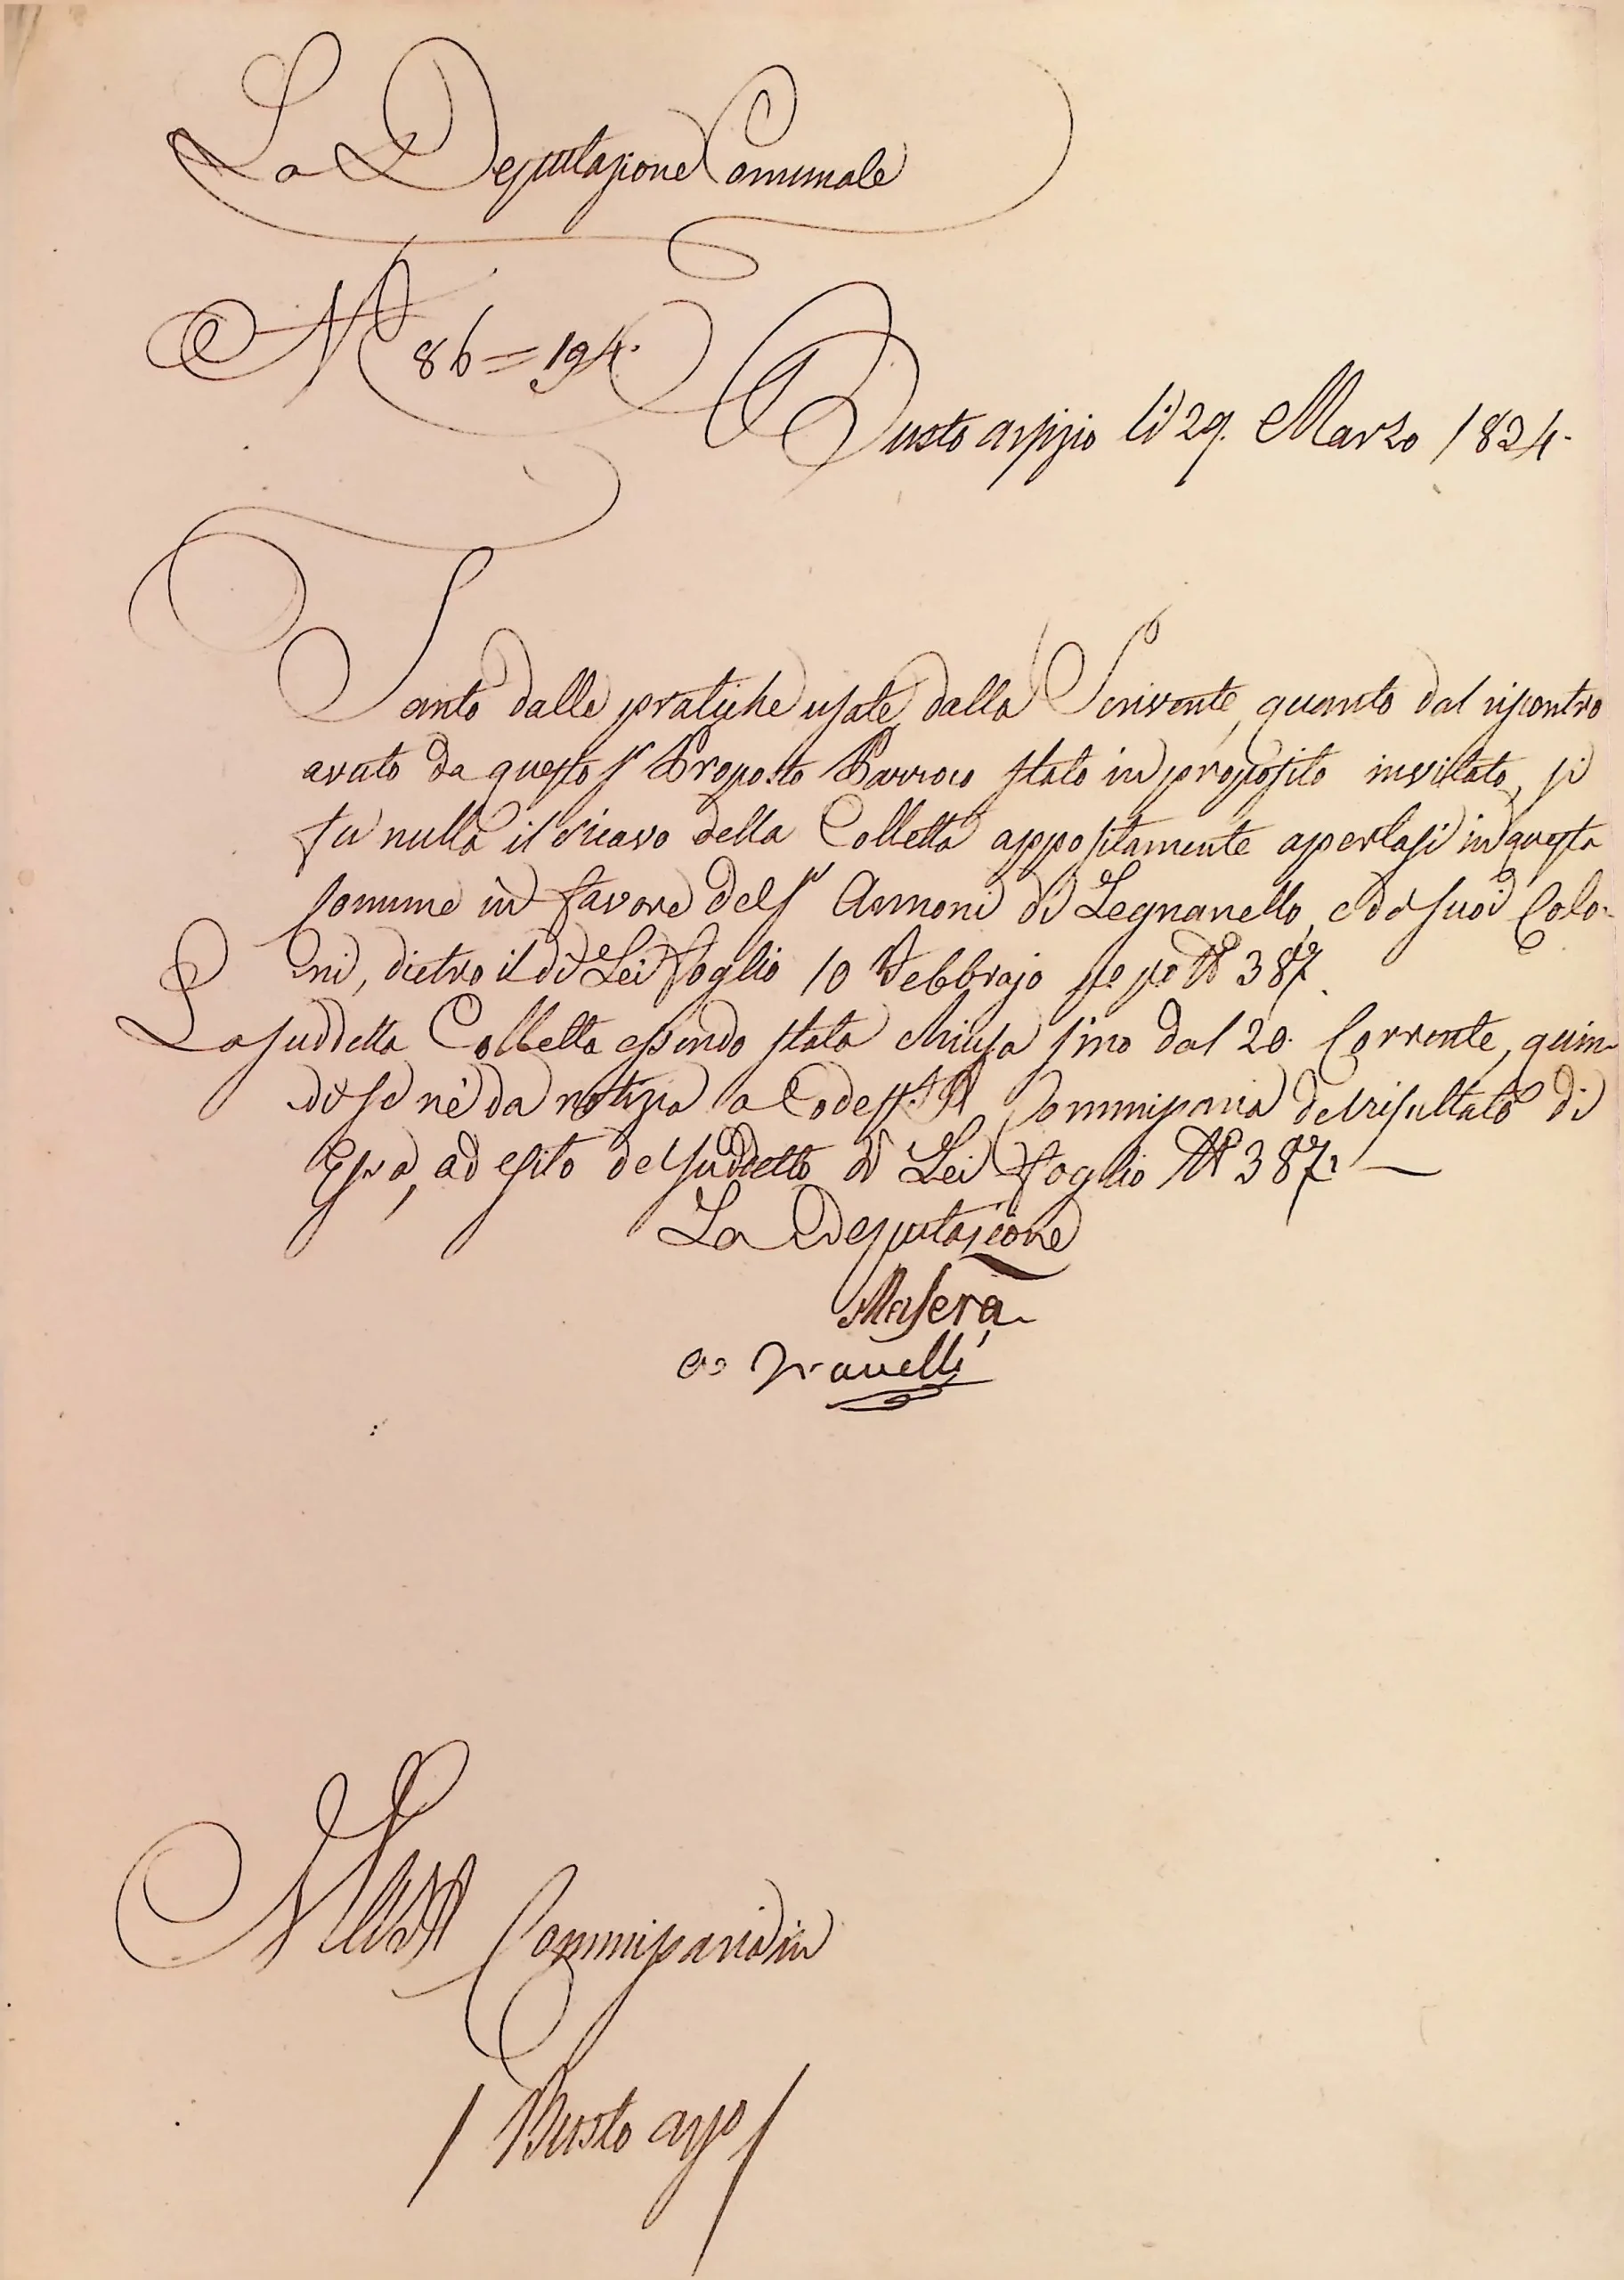 La Deputazione Comunale
N.º 86=194.
Busto arsizio li 29. Marzo 1824.
Tanto dalle pratiche usate dalla Scrivente, quanto dal riscontro
avuto da questo Sr Proposto Parroco stato in proposito invitato, si
fu nullo il ricavo della Colletta appositamente apertasi in questa
Comune in favore del Sr Annoni di Legnanello, e de suoi Colo-
ni, dietro il di Lei foglio 10 Febbrajo po po Nº 387.
La suddetta Colletta essendo stata chiusa sino dal 20. Corrente, quin-
di se nè da notizia a Codest. R. Commissaria del risultato di
Essa, ad esito del suddetto di Lei foglio Nº 387. —
La Deputazione
Masera
Travelli
All' I. R. Commissaria in
/ Busto arso /